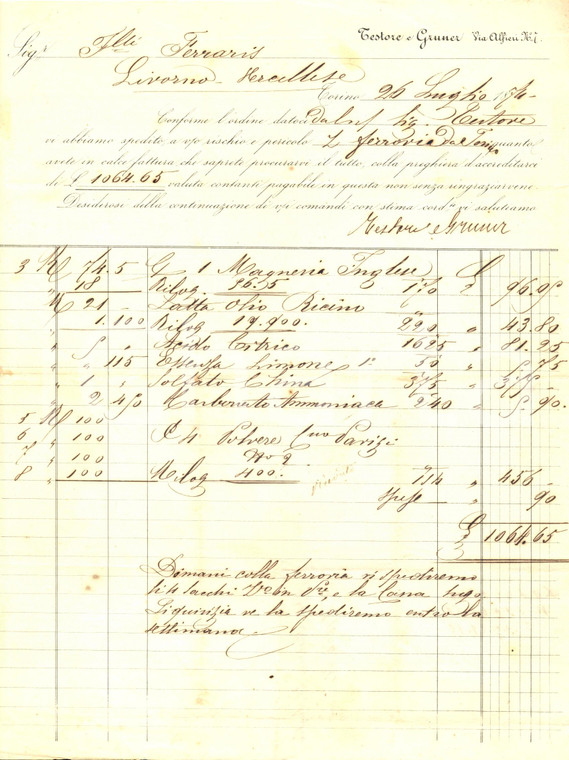 Testore e Gruner Via Alfieri N. 7.
Sig.ri F.lli Ferraris
Livorno-Vercellese
Torino, 26 Luglio 187
Conforme l'ordine datoci dal sig. Testore
vi abbiamo spedito, a v/o rischio e pericolo ferrovia quanto
avete in calce fattura che saprete procurarvi il tutto, colla preghiera d'accreditarci
di £ 1064.65 valuta contanti pagabile in questa non senza ringraziarvene.
Desiderosi della continuazione di v/i comandi con stima cord.te vi salutiamo
Testore e Gruner
3 74.5 1 Magnesia Inglese £
18 Kilog 56.55 170 96.05
21 Latta Olio Ricino
1.100 Kilog 19.900. 220 " 43.80
5 " Acido Citrico 1625 " 81.25
" 115 Essenza Limone 1a 50 " 5.75
1 " Solfato China 375 " 375
2 450 Carbonato Ammoniaca 240 " 5.90.
5 100
6 " 100 4 Polvere Parigi
7 " 100 N° 2
8 " 100 Kilog 400. 114 " 456
spese " 90
£ 1064.65
Domani colla ferrovia vi spediremo
li 4 sacchi e la Cana sugo
Liquirizia ve la spediremo entro la
settimana.